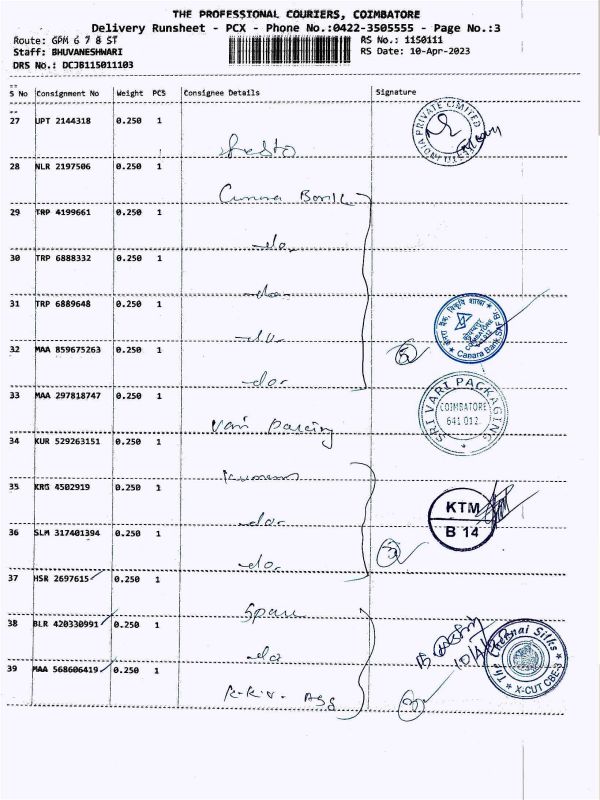 THE PROFESSIONAL COURIERS, COIMBATORE
Delivery Runsheet - PCX - Phone No.:0422-3505555 - Page No.:3
Route: GPM 6 7 8 ST
RS No.: 1150111
Staff: BHUVANESHWARI
RS Date: 10-Apr-2023
DRS No.: DCJB115011103
S No Consignment No Weight PCS Consignee Details Signature
27 UPT 2144318 0.250 1
PRIVATE LIMITED
28 NLR 2197506 0.250 1
Canara Bank
29 TRP 4199661 0.250 1
-do-
30 TRP 6888332 0.250 1
-do-
31 TRP 6889648 0.250 1
-do-
Canara Bank
5
32 MAA 859675263 0.250 1
-do-
33 MAA 297818747 0.250 1
Vari Packing
SRI VARI PACKAGING
COIMBATORE
641 012
34 KUR 529263151 0.250 1
35 KRG 4502919 0.250 1
-do-
KTM
B 14
36 SLM 317401394 0.250 1
-do-
37 HSR 2697615 0.250 1
38 BLR 420330991 0.250 1
-do
The Chennai Silks
X-CUT CBE-3
39 MAA 568606419 0.250 1